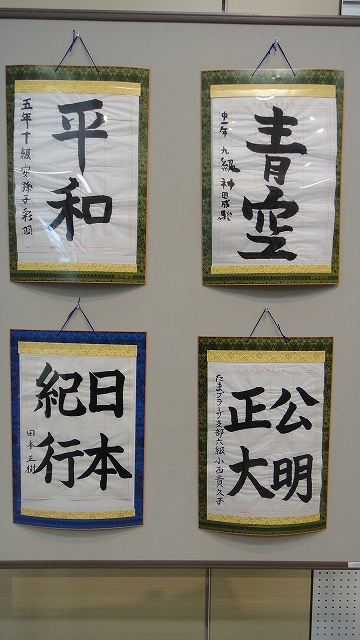 平和
五年 十級 安孫子彩羽
青空
中一年 九級 神田
日本
紀行
田本正樹
公明
正大
たまプラーザ支部六級小西貴久子